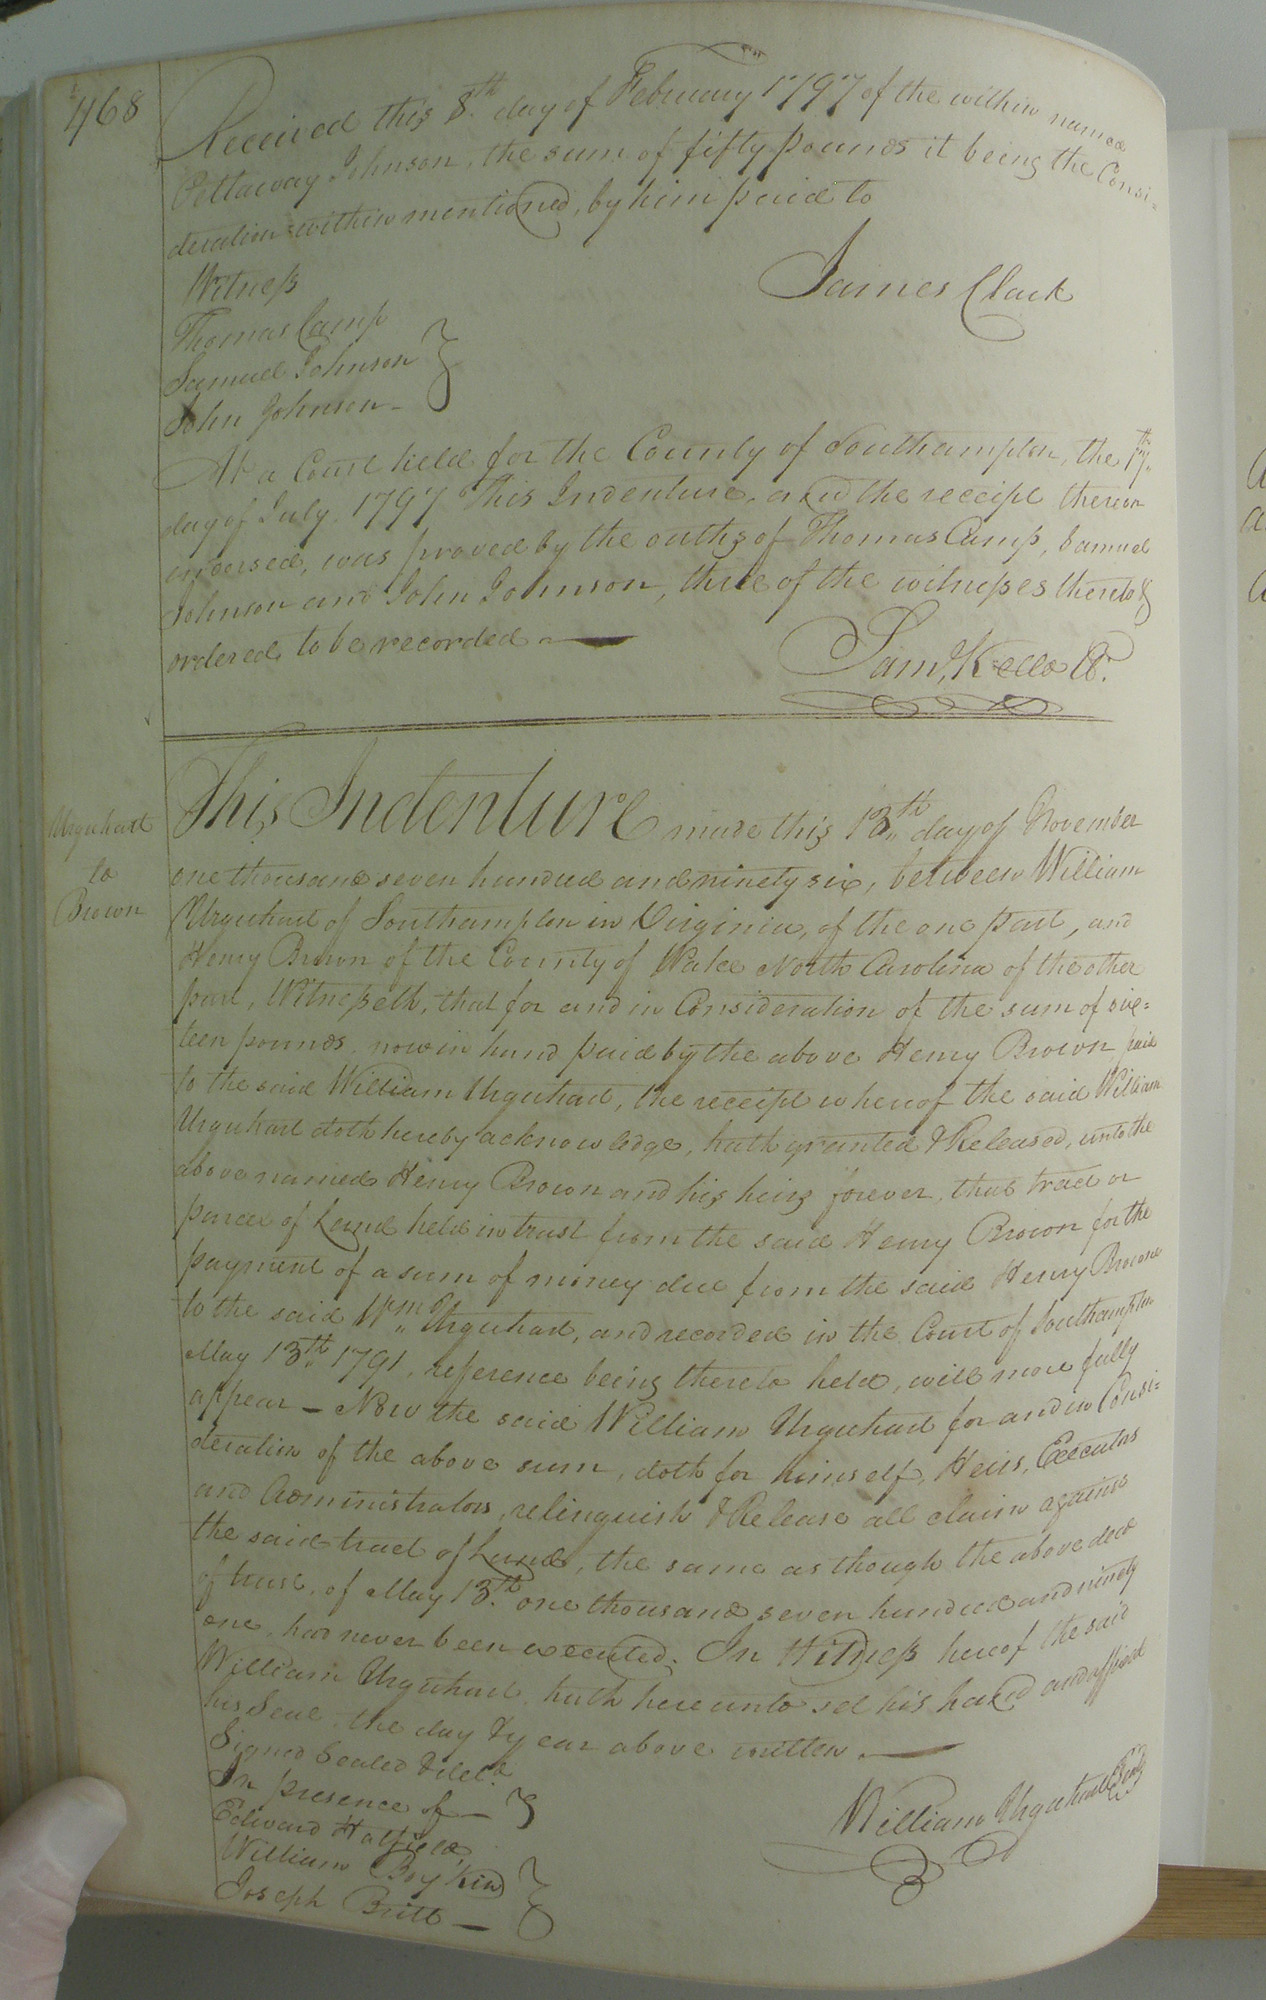 468
Received this 8th day of February 1797 of the within named
Pettaway Johnson, the sum of fifty pounds it being the Consi=
deration within mentioned, by him paid to
James Clark
Witness
Thomas Camp
Samuel Johnson
John Johnson
At a Court held for the County of Southampton, the 17th
day of July 1797 This Indenture, and the receipt thereon
indorsed, was proved by the oaths of Thomas Camp, Samuel
Johnson and John Johnson, three of the witnesses thereto &
ordered to be recorded
Saml. Kello Cl.
Urquhart
to
Brown
This Indenture made this 13th day of November
one thousand seven hundred and ninety six, between William
Urquhart of Southampton in Virginia, of the one part, and
Henry Brown of the County of Wake North Carolina of the other
part, Witnesseth, that for and in Consideration of the sum of six=
teen pounds, now in hand paid by the above Henry Brown paid
to the said William Urquhart, the receipt whereof the said William
Urquhart doth hereby acknowledge, hath granted & Released, unto the
above named Henry Brown and his heirs forever, that tract or
parcel of Land held in trust from the said Henry Brown for the
payment of a sum of money due from the said Henry Brown
to the said Wm. Urquhart, and recorded in the Court of Southampton
May 13th 1791, reference being thereto held, will more fully
appear – Now the said William Urquhart for and in Consi=
deration of the above sum, doth for himself, Heirs, Executors
and Administrators, relinquish & Release all claim against
the said tract of Land, the same as though the above deed
of trust, of May 13th one thousand seven hundred and ninety
one, had never been executed. In Witness hereof the said
William Urquhart, hath hereunto set his hand and affixed
his Seal the day & year above written
Signed Sealed & deld.
In presence of
William Urquhart Seal
Edward Hatfield
William Boykin
Joseph Britt